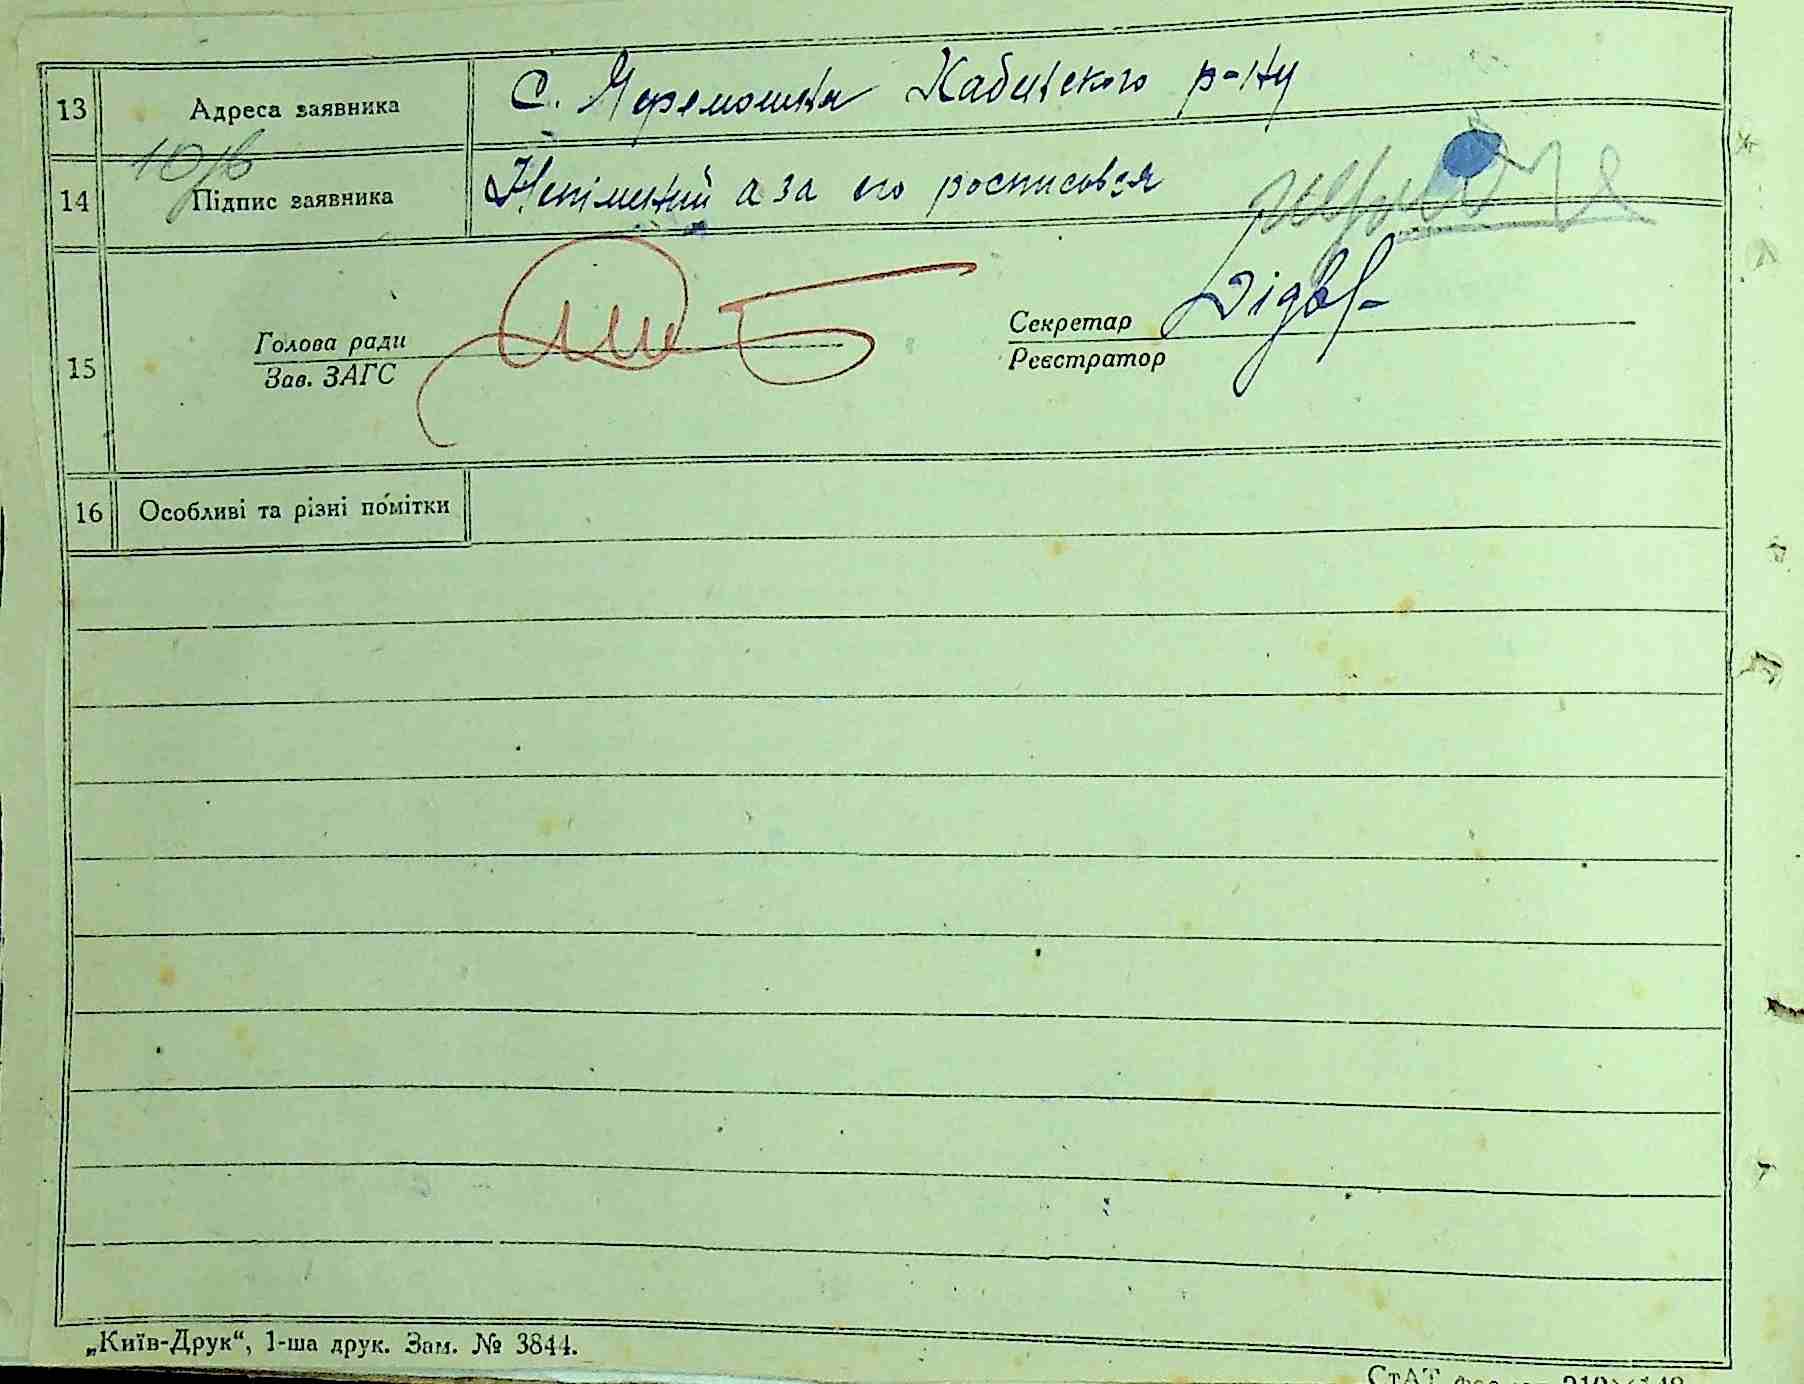 13 Адреса заявника С. Черемошна Кабинского р-ну
10/в
14 Підпис заявника Неписмений а за его росписовся
15 Голова ради Секретар Дідов
Зав. ЗАГС Реєстратор
16 Особливі та різні помітки
„Київ-Друк“, 1-ша друк. Зам. № 3844.